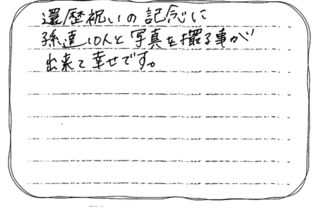 還歴祝いの記念に
孫達10人と写真を撮る事が
出来て幸せです。